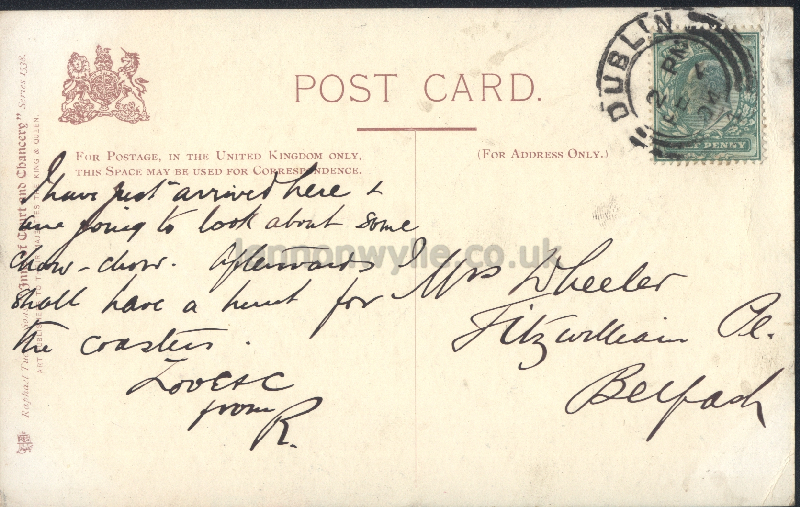 POST CARD.
FOR POSTAGE, IN THE UNITED KINGDOM ONLY,
THIS SPACE MAY BE USED FOR CORRESPONDENCE.
(FOR ADDRESS ONLY.)
DUBLIN
2 PM
FE 1
PENNY
I have just arrived here &
are going to look about some
chow-chow. Afterwards I
shall have a hunt for
the coasters.
Love &c
from
R.
Mrs Wheeler
Fitzwilliam Pl.
Belfast
lennonwylie.co.uk
Raphael Tuck & Sons' "Inns of Court and Chancery" Series 1538.
ART PUBLISHERS TO THEIR MAJESTIES THE KING & QUEEN.